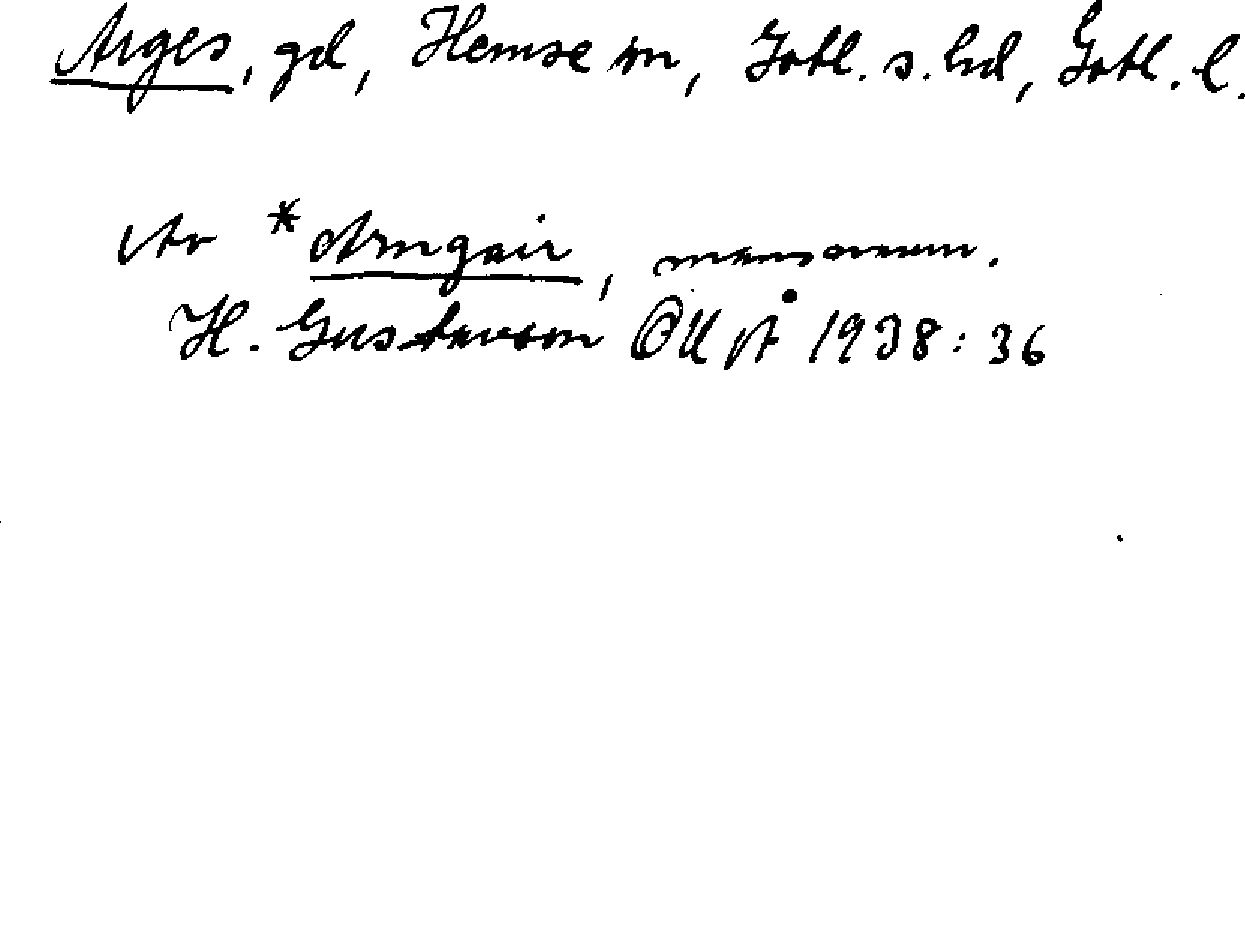 Arges, gd, Hemse sn, Gotl. s. hd, Gotl. l.
Av *Arngair, mansnamn.
H. Gustavson GUÅ 1938: 36